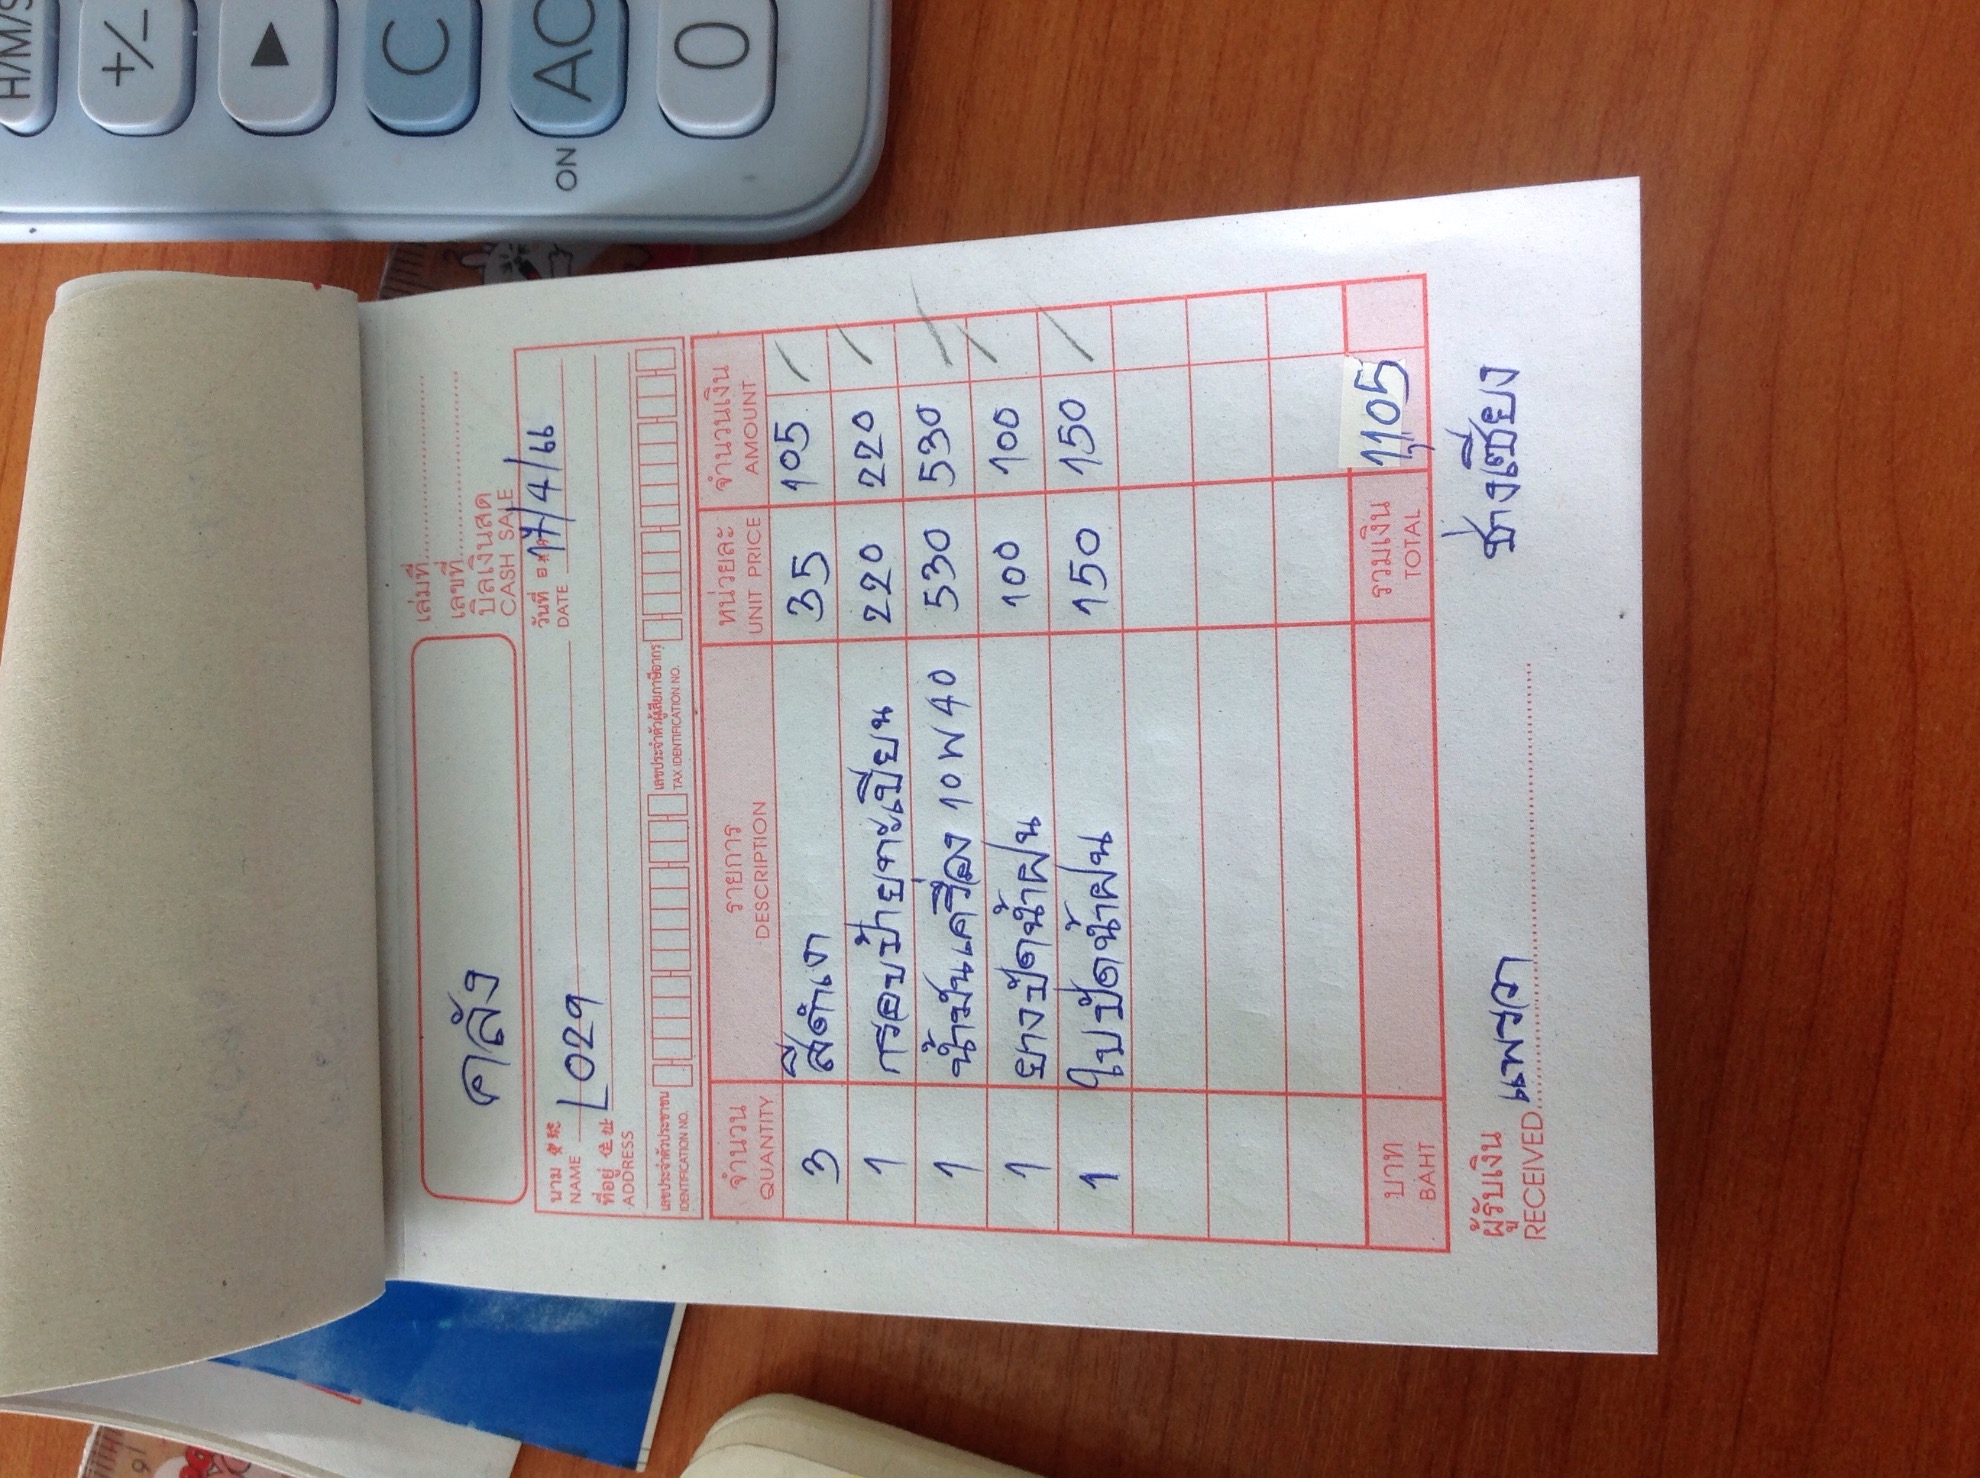 H/M/S
+/−
▶
C
AC
0
ON
เล่มที่
เลขที่
คลัง
บิลเงินสด
CASH SALE
นาม
NAME
L029
วันที่
DATE
17/4/66
ที่อยู่
ADDRESS
เลขประจำตัวประชาชน
IDENTIFICATION NO.
เลขประจำตัวผู้เสียภาษีอากร
TAX IDENTIFICATION NO.
จำนวน รายการ หน่วยละ จำนวนเงิน
QUANTITY DESCRIPTION UNIT PRICE AMOUNT
3 สีดำเงา 35 105
1 กรอบป้ายทะเบียน 220 220
1 น้ำมันเครื่อง 10W40 530 530
1 ยางปัดน้ำฝน 100 100
1 ใบปัดน้ำฝน 150 150
บาท รวมเงิน 1,105
BAHT TOTAL
ผู้รับเงิน
RECEIVED
แพรวา
ช่างเชียง